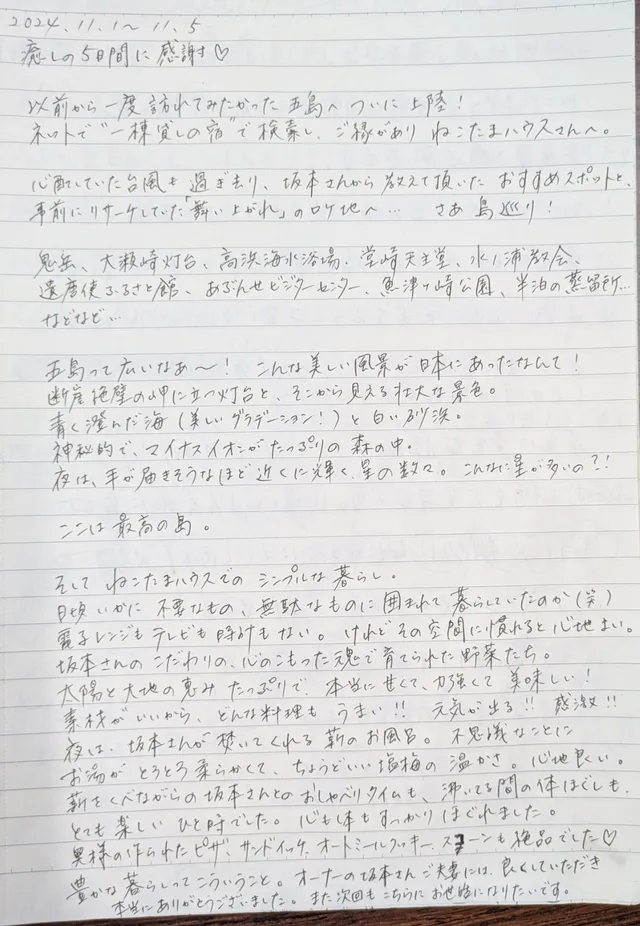 2024.11.1～11.5
癒しの5日間に感謝♡
以前から一度訪れてみたかった五島へついに上陸！
ネットで"一棟貸しの宿"で検索し、ご縁があり ねこたまハウスさんへ。
心配していた台風も過ぎ去り、坂本さんから教えて頂いた おすすめスポットと、
事前にリサーチしていた「舞い上がれ」のロケ地へ… さあ 島巡り！
鬼岳、大瀬崎灯台、高浜海水浴場、堂崎天主堂、水ノ浦教会、
遣唐使ふるさと館、あぶんぜビジターセンター、魚津ヶ崎公園、半泊の蒸留所…
などなど…
五島って広いなあ～！ こんな美しい風景が日本にあったなんて！
断崖絶壁の岬に立つ灯台と、そこから見える壮大な景色。
青く澄んだ海（美しいグラデーション！）と白い砂浜。
神秘的で、マイナスイオンがたっぷりの森の中。
夜は、手が届きそうなほど近くに輝く星の数々。こんなに星が多いの？！
ここは最高の島。
そして ねこたまハウスでの シンプルな暮らし。
日頃いかに不要なもの、無駄なものに囲まれて暮らしていたのか（笑）
電子レンジもテレビも時計もない。けれどその空間に慣れると心地よい。
坂本さんのこだわりの、心のこもった魂で育てられた野菜たち。
太陽と大地の恵みたっぷりで、本当に甘くて、力強くて美味しい！
素材がいいから、どんな料理も うまい!! 元気が出る!! 感激!!
夜は、坂本さんが焚いてくれる薪のお風呂。不思議なことに
お湯がとろとろ柔らかくて、ちょうどいい塩梅の温かさ。心地良い。
薪をくべながらの坂本さんとのおしゃべりタイムも、沸いてる間の体ほぐしも、
とても楽しいひと時でした。心も体もすっかりほぐれました。
奥様の作られたピザ、サンドイッチ、オートミールクッキー、スコーンも絶品でした♡
豊かな暮らしってこういうこと。オーナーの坂本さんご夫妻には、良くしていただき
本当にありがとうございました。また次回もこちらにお世話になりたいです。